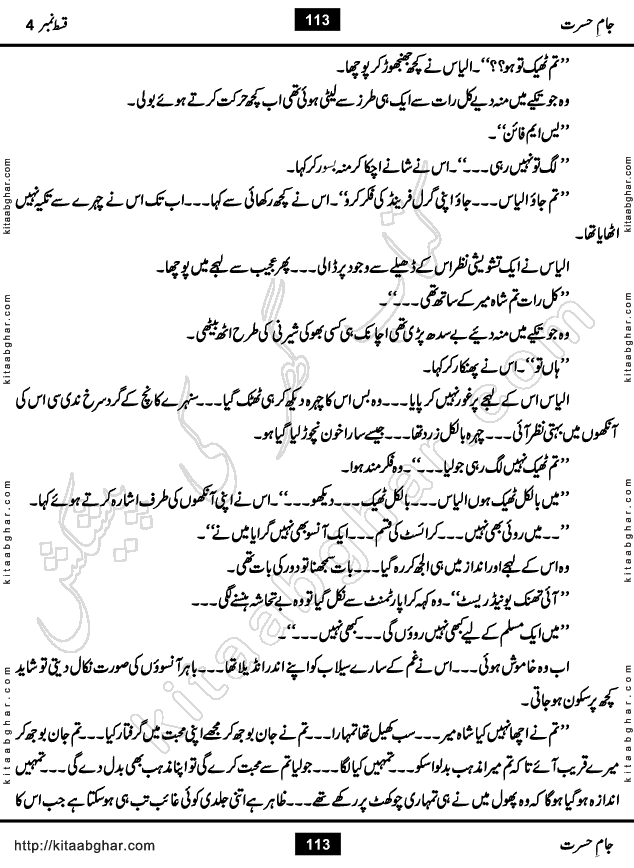 قسط نمبر 4
113
جامِ حسرت
’’تم ٹھیک تو ہو؟؟‘‘۔ الیاس نے کچھ جھنجھوڑ کر پوچھا۔
وہ جو تکیے میں منہ دیے کل رات سے ایک ہی طرز سے لیٹی ہوئی تھی اب کچھ حرکت کرتے ہوئے بولی۔
’’یس ایم فائن‘‘۔
’’لگ تو نہیں رہی۔۔۔‘‘۔ اس نے شانے اچکا کر منہ بسور کر کہا۔
’’تم جاؤ الیاس۔۔۔ جاؤ اپنی گرل فرینڈ کی فکر کرو‘‘۔ اس نے کچھ رکھائی سے کہا۔۔۔ اب تک اس نے چہرے سے تکیہ نہیں
اٹھایا تھا۔
الیاس نے ایک تشویشی نظر اس کے ڈھیلے سے وجود پر ڈالی۔۔۔ پھر عجیب سے لہجے میں پوچھا۔
’’کل رات تم شاہ میر کے ساتھ تھی۔۔۔‘‘۔
وہ جو تکیے میں منہ دئیے بے سدھ پڑی تھی اچانک ہی کسی بھوکی شیرنی کی طرح اٹھ بیٹھی۔
’’ہاں تو‘‘۔ اس نے پھنکار کر کہا۔
الیاس اس کے لہجے پر غور نہیں کر پایا۔۔۔ وہ بس اس کا چہرہ دیکھ کر ہی ٹھٹک گیا۔۔۔ سنہرے کانچ کے گرد سرخ ندی سی اس کی
آنکھوں میں بہتی نظر آئی۔۔۔ چہرہ بالکل زرد تھا۔۔۔ جیسے سارا خون نچوڑ لیا گیا ہو۔
’’تم ٹھیک نہیں لگ رہی جولیا۔۔۔‘‘۔ وہ فکر مند ہوا۔
’’میں بالکل ٹھیک ہوں الیاس۔۔۔ بالکل ٹھیک۔۔۔ دیکھو۔۔۔‘‘۔ اس نے اپنی آنکھوں کی طرف اشارہ کرتے ہوئے کہا۔
’’۔۔ میں روئی بھی نہیں۔۔۔ کرائسٹ کی قسم۔۔۔ ایک آنسو بھی نہیں گرایا میں نے‘‘۔
وہ اس کے لہجے اور انداز میں ہی الجھ کر رہ گیا۔۔۔ بات سمجھنا تو دور کی بات تھی۔
’’آئی تھنک یو نیڈ ریسٹ‘‘۔ وہ کہہ کر اپارٹمنٹ سے نکل گیا تو وہ بے تحاشہ ہنسنے لگی۔۔۔
’’میں ایک مسلم کے لیے کبھی نہیں روؤں گی۔۔۔ کبھی نہیں۔۔۔‘‘۔
اب وہ خاموش ہوئی۔۔۔ اس نے غم کے سارے سیلاب کو اپنے اندر انڈیلا تھا۔۔۔ باہر آنسوؤں کی صورت نکال دیتی تو شاید
کچھ پر سکون ہو جاتی۔
’’تم نے اچھا نہیں کیا شاہ میر۔۔۔ سب کھیل تھا تمہارا۔۔۔ تم نے جان بوجھ کر مجھے اپنی محبت میں گرفتار کیا۔۔۔ تم جان بوجھ کر
میرے قریب آئے تاکہ تم میرا مذہب بدلوا سکو۔۔۔ تمہیں کیا لگا۔۔۔ جولیا تم سے محبت کرے گی تو اپنا مذہب بھی بدل دے گی۔۔۔ تمہیں
اندازہ ہو گیا ہو گا کہ وہ پھول میں نے ہی تمہاری چوکھٹ پر رکھے تھے۔۔۔ ظاہر ہے اتنی جلدی کوئی غائب تب ہی ہو سکتا ہے جب اس کا
kitaabghar.com
kitaabghar.com
kitaabghar.com
kitaabghar.com
kitaabghar.com
kitaabghar.com
kitaabghar.com
kitaabghar.com
کتاب گھر کی پیشکش
kitaabghar.com
http://kitaabghar.com
113
جامِ حسرت